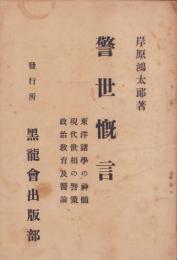 岸原鴻太郎著
警世慨言
東洋諸學の神髓
現代世相の警策
政治教育及醫論
發行所
黑龍會出版部